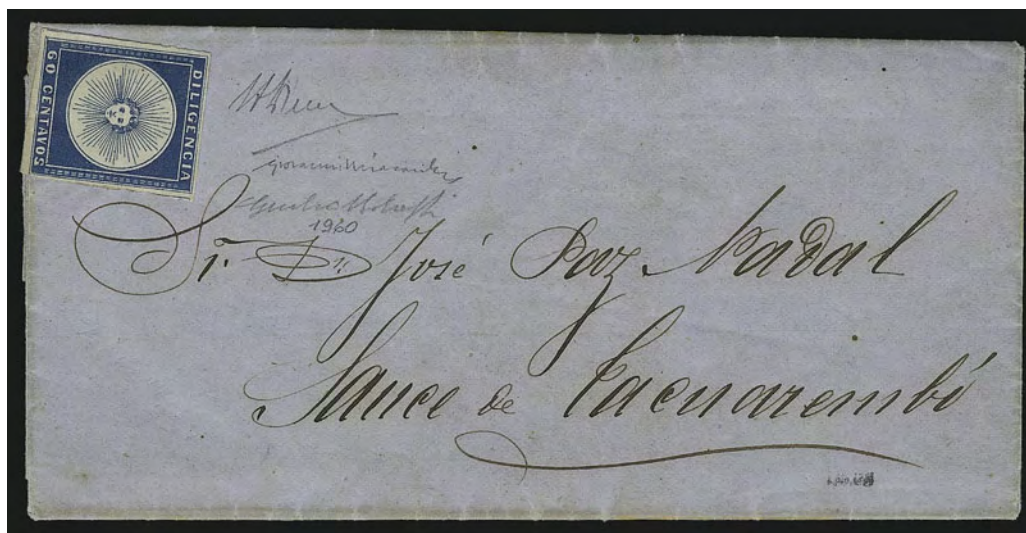 DILIGENCIA
60 CENTAVOS
1960
Sr. Dn. José Paz Nadal
Sauce de Tacuarembó